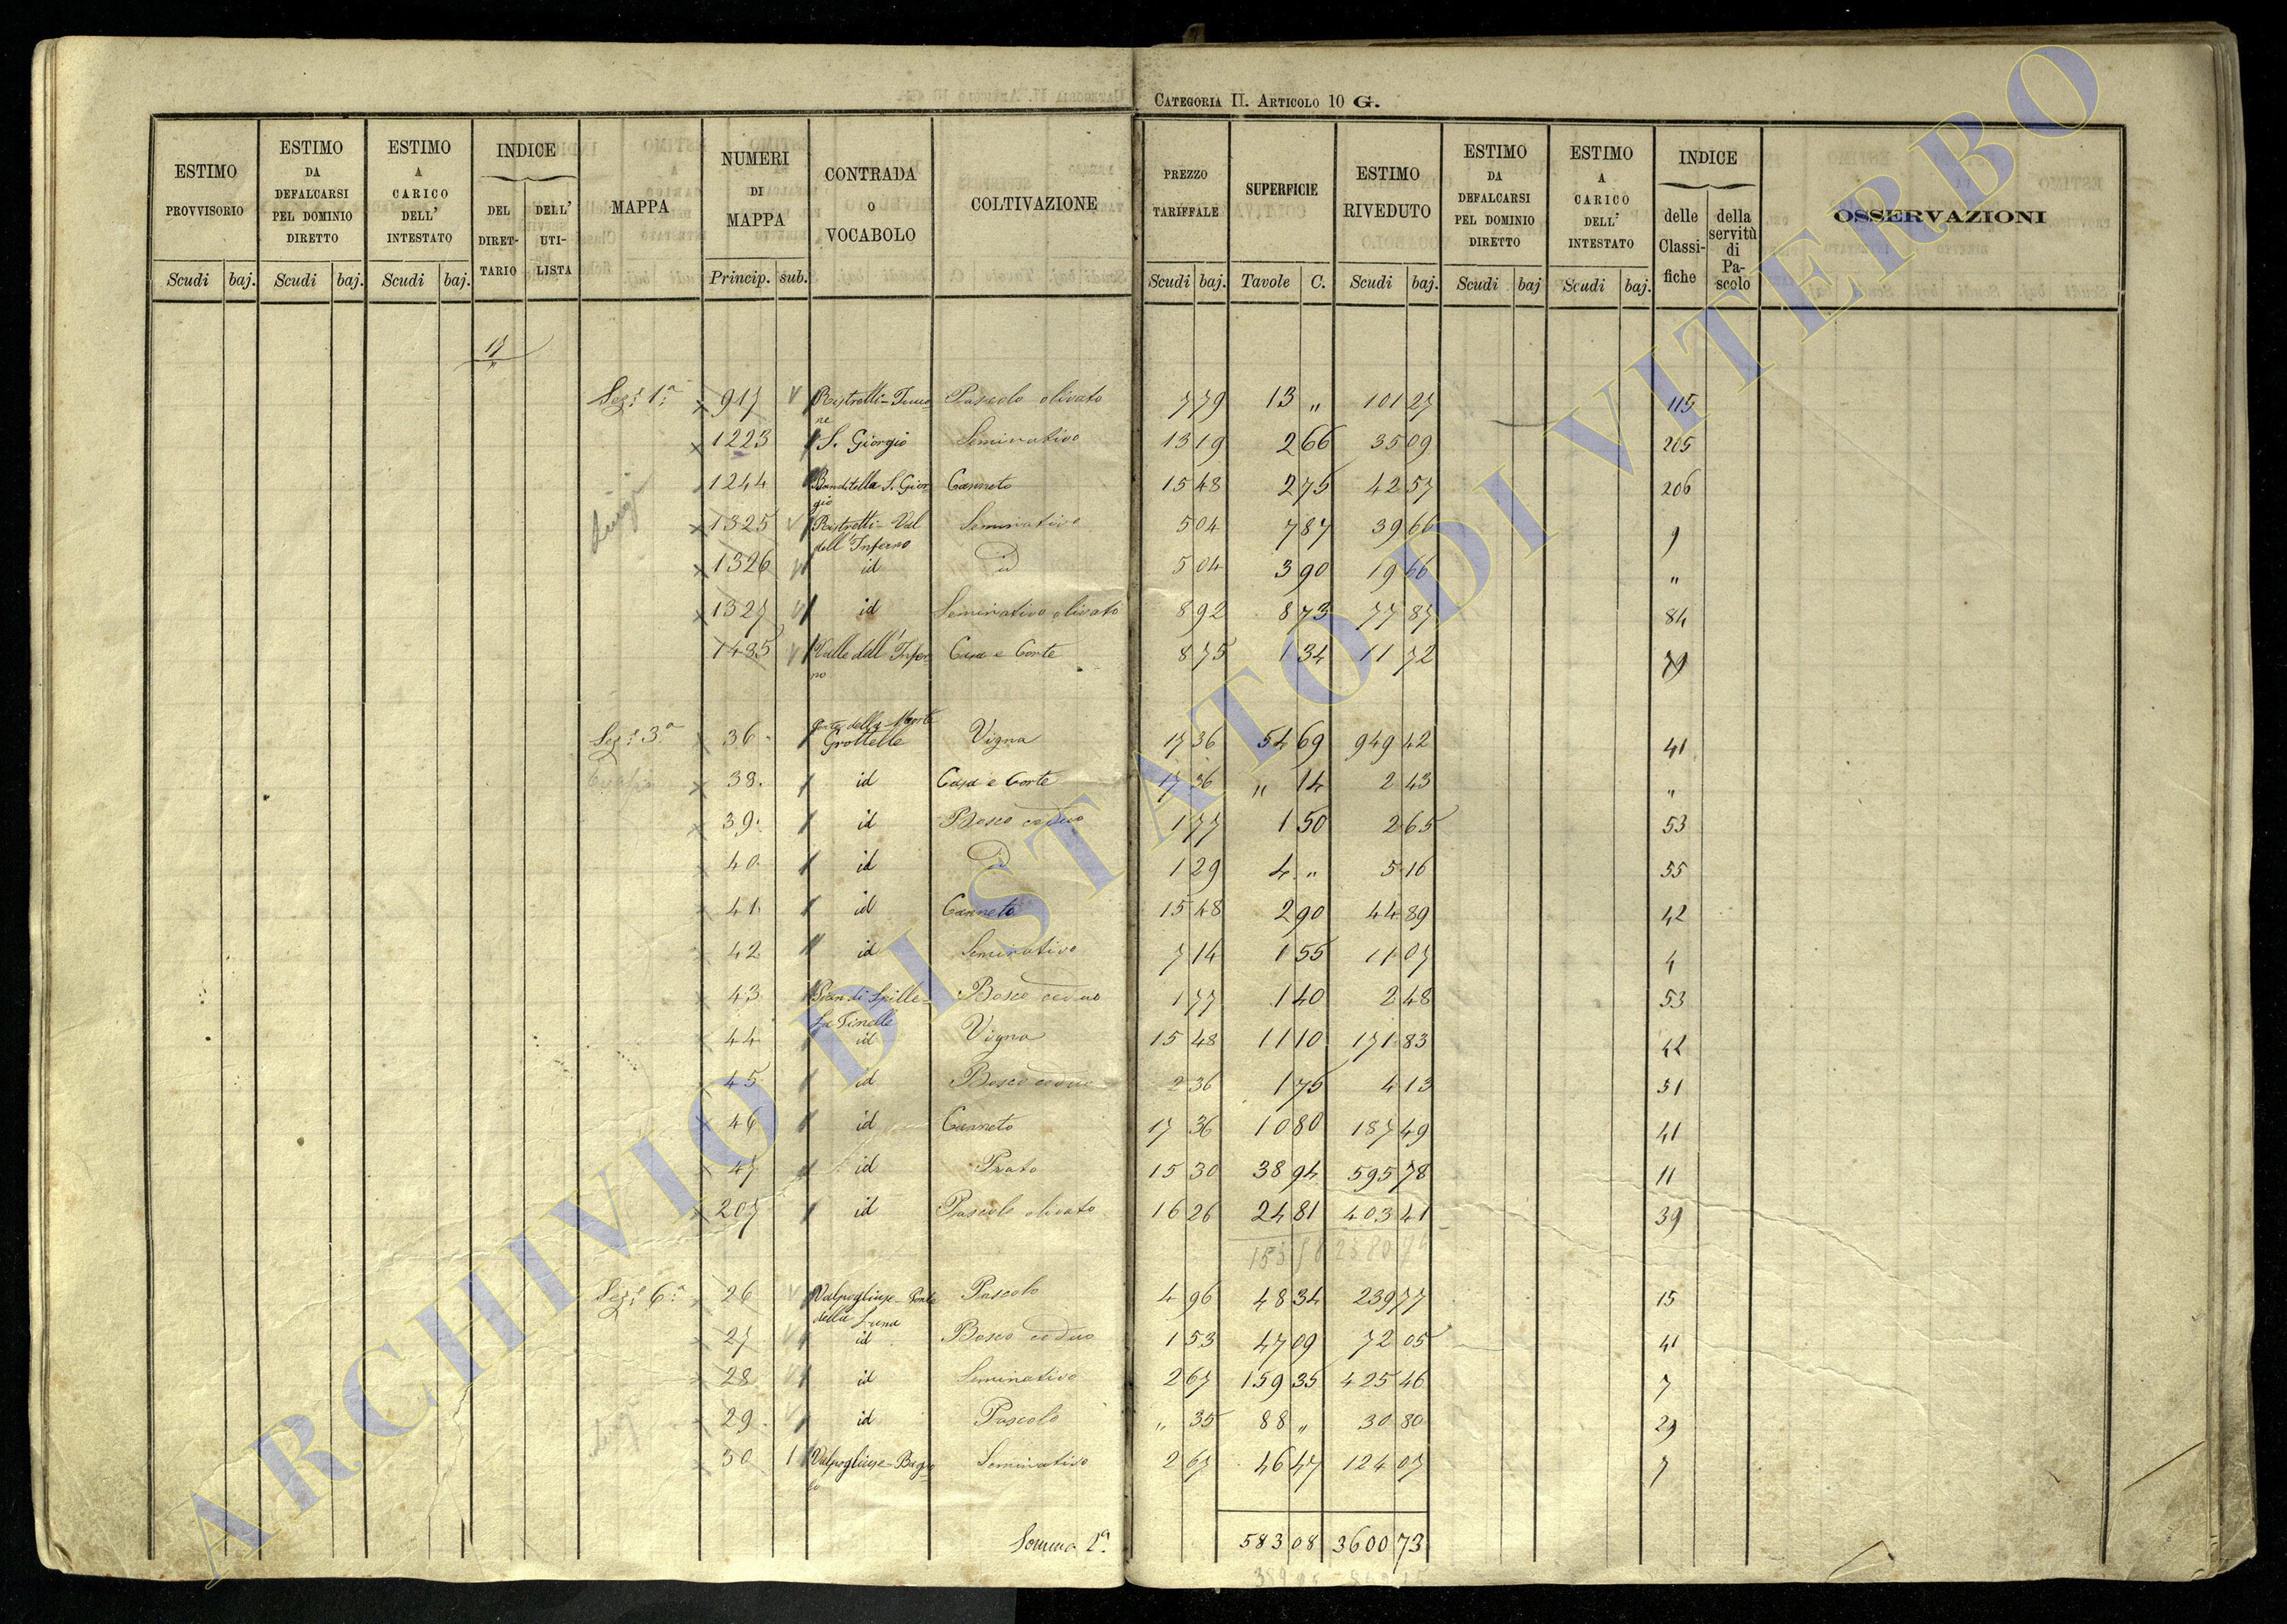 CATEGORIA II. ARTICOLO 10 G.
ESTIMO PROVVISORIO
ESTIMO DA DEFALCARSI PEL DOMINIO DIRETTO
ESTIMO A CARICO DELL' INTESTATO
INDICE
DEL DIRET-TARIO
DELL' UTI-LISTA
MAPPA
NUMERI DI MAPPA
CONTRADA O VOCABOLO
COLTIVAZIONE
PREZZO TARIFFALE
SUPERFICIE
ESTIMO RIVEDUTO
ESTIMO DA DEFALCARSI PEL DOMINIO DIRETTO
ESTIMO A CARICO DELL' INTESTATO
INDICE
delle Classi-fiche
della servitù di Pa-scolo
OSSERVAZIONI
Scudi baj. Scudi baj. Scudi baj. Princip. sub. Scudi baj. Tavole C. Scudi baj. Scudi baj Scudi baj.
17
Sez.e 1.a 917 Ristretti - Pascolo olivato 7 79 13 " 101 27 115
ne
1223 S. Giorgio Seminativo 13 19 2 66 35 09 205
1244 Banditella S. Gior Canneto 15 48 2 75 42 57 206
gio
Luigi
1325 Ristretti - Val Seminativo 5 04 7 87 39 66 9
dell'Inferno
1326 id id 5 04 3 90 19 66 "
1327 id Seminativo olivato 8 92 8 73 77 87 84
1435 Valle dell'Infer Casa e Corte 8 75 1 34 11 72 79
no
della Morte
Sez.e 3.a 36 Grottelle Vigna 17 36 54 69 949 42 41
38 id Casa e Corte 17 36 " 14 2 43 "
39 id Bosco ceduo 1 77 1 50 2 65 53
40 id id 1 29 4 " 5 16 55
41 id Canneto 15 48 2 90 44 89 42
42 id Seminativo 7 14 1 55 11 07 4
43 Pian di Spille - Bosco ceduo 1 77 1 40 2 48 53
Le Tinelle
44 id Vigna 15 48 11 10 171 83 42
45 id Bosco ceduo 2 36 1 75 4 13 51
46 id Canneto 17 36 10 80 187 49 41
47 id Prato 15 30 38 94 595 78 11
207 id Pascolo olivato 16 26 24 81 403 41 39
Sez.e 6.a 26 Valpogliuse - Ponte Pascolo 4 96 48 34 239 77 15
della Luna
27 id Bosco ceduo 1 53 47 09 72 05 41
28 id Seminativo 2 67 159 35 425 46 7
29 id Pascolo " 35 88 " 30 80 29
Luigi
30 1 Valpogliuse - Seminativo 2 67 46 47 124 07 7
Somma 583 08 3600 73
ARCHIVIO DI STATO DI VITERBO